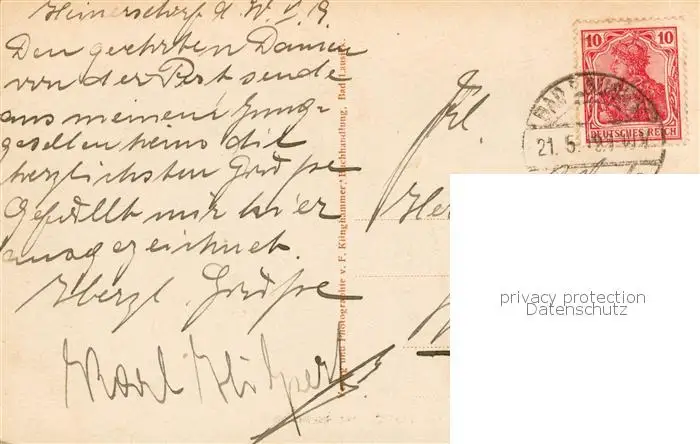 Heinersdorf d. 20. V. 19.
Den geehrten Damen
von der Post sende
aus meinem Jung-
gesellenheim die
herzlichsten Grüße
Gefällt mir hier
ausgezeichnet.
Herzl. Grüße
Karl
Verlag und Photographie v. F. Klinghammer, Buchhandlung, Bad Lausick.
Frl.
10 10
DEUTSCHES REICH
BAD LAUSICK
21. 5. 19.
privacy protection
Datenschutz